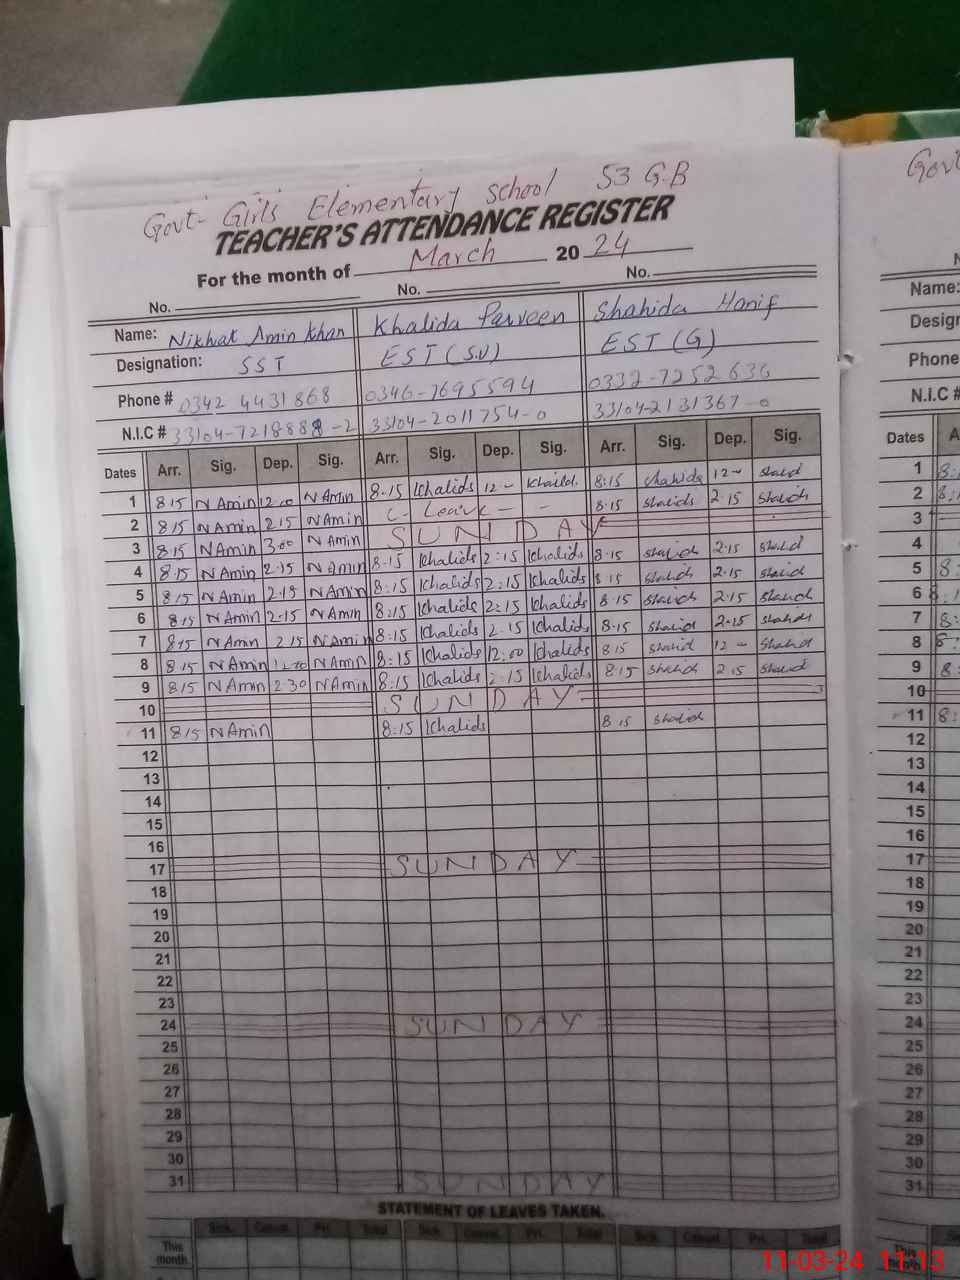 Govt- Girls Elementary School 53 G.B
TEACHER'S ATTENDANCE REGISTER
For the month of March 2024
No. No. No.
Name: Nikhat Amin Khan Khalida Parveen Shahida Hanif
Designation: SST EST (S.V) EST (G)
Phone # 0342 4431868 0346-7695594 0332-7252636
N.I.C # 33104-7218888-2 33104-2011754-0 33104-2131367-0
Dates Arr. Sig. Dep. Sig. Arr. Sig. Dep. Sig. Arr. Sig. Dep. Sig.
1 8 15 N Amin 12.00 N Amin 8.15 Khalids 12 - Khalid. 8.15 Shahida 12 - Shahid
2 8 15 N Amin 2 15 N Amin C- Leave - - 8.15 Shahids 2.15 Shahid
3 8 15 N Amin 3.00 N Amin SUNDAY
4 8.15 N Amin 2.15 N Amin 8.15 Khalids 2:15 Khalids 8.15 Shahid 2.15 Shahid
5 8 15 N Amin 2.15 N Amin 8:15 Khalids 2:15 Khalids 8.15 Shahid 2.15 Shahid
6 8 15 N Amin 2.15 N Amin 8:15 Khalids 2:15 Khalids 8.15 Shahid 2.15 Shahid
7 8 15 N Amin 2 15 N Amin 8:15 Khalids 2.15 Khalids 8.15 Shahid 2.15 Shahid
8 8 15 N Amin 12.00 N Amin 8:15 Khalids 12:00 Khalids 8 15 Shahid 12 - Shahid
9 8 15 N Amin 2.30 N Amin 8:15 Khalids 2:15 Khalids 8.15 Shahid 2.15 Shahid
10 SUNDAY
11 8 15 N Amin 8:15 Khalids 8 15 Shahid
12
13
14
15
16
17 SUNDAY
18
19
20
21
22
23
24 SUNDAY
25
26
27
28
29
30
31 SUNDAY
STATEMENT OF LEAVES TAKEN.
Sick. Casual. Pri. Total Sick. Casual. Pri. Total Sick. Casual. Pri. Total
This
month.
Govt
Name:
Design
Phone
N.I.C.#
Dates
1 8:
2 8:
3
4
5 8:
6 8:
7 8:
8 8:
9 8:
10
11 8:
12
13
14
15
16
17
18
19
20
21
22
23
24
25
26
27
28
29
30
31
11-03-24 11:13